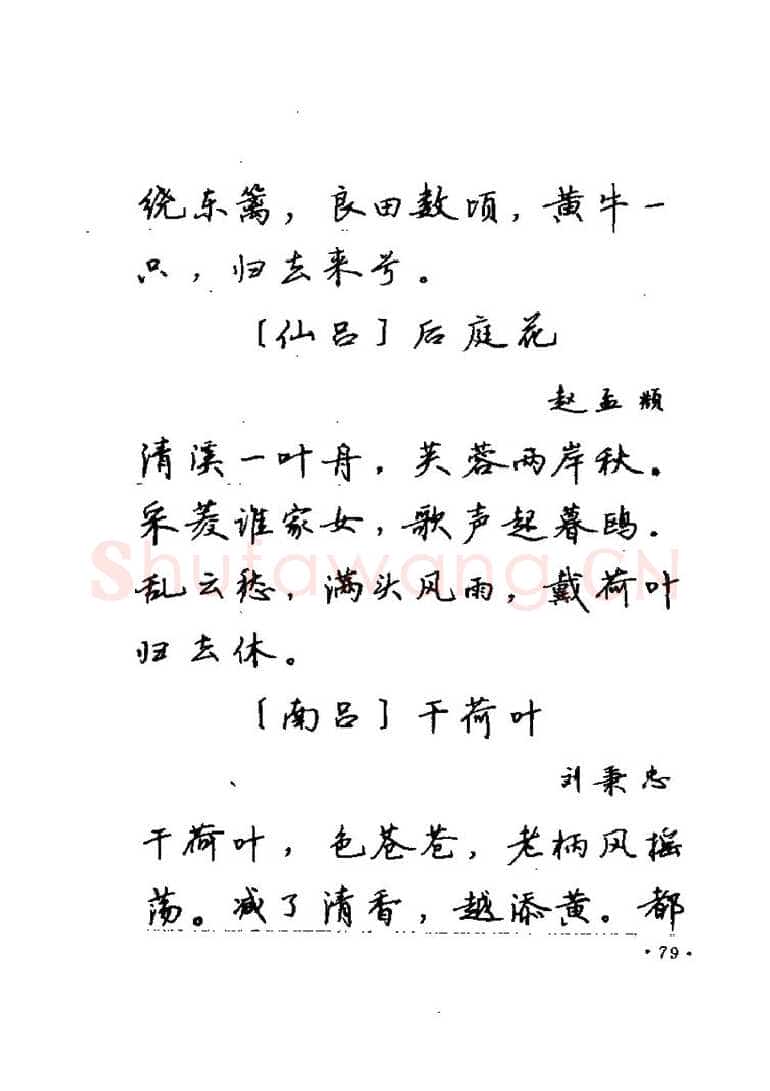 绕东篱，良田数顷，黄牛一
只，归去来兮。
［仙吕］后庭花
赵孟頫
清溪一叶舟，芙蓉两岸秋。
采菱谁家女，歌声起暮鸥。
乱云愁，满头风雨，戴荷叶
归去休。
［南吕］干荷叶
刘秉忠
干荷叶，色苍苍，老柄风摇
荡。减了清香，越添黄。都
·79·
Shufawang.CN